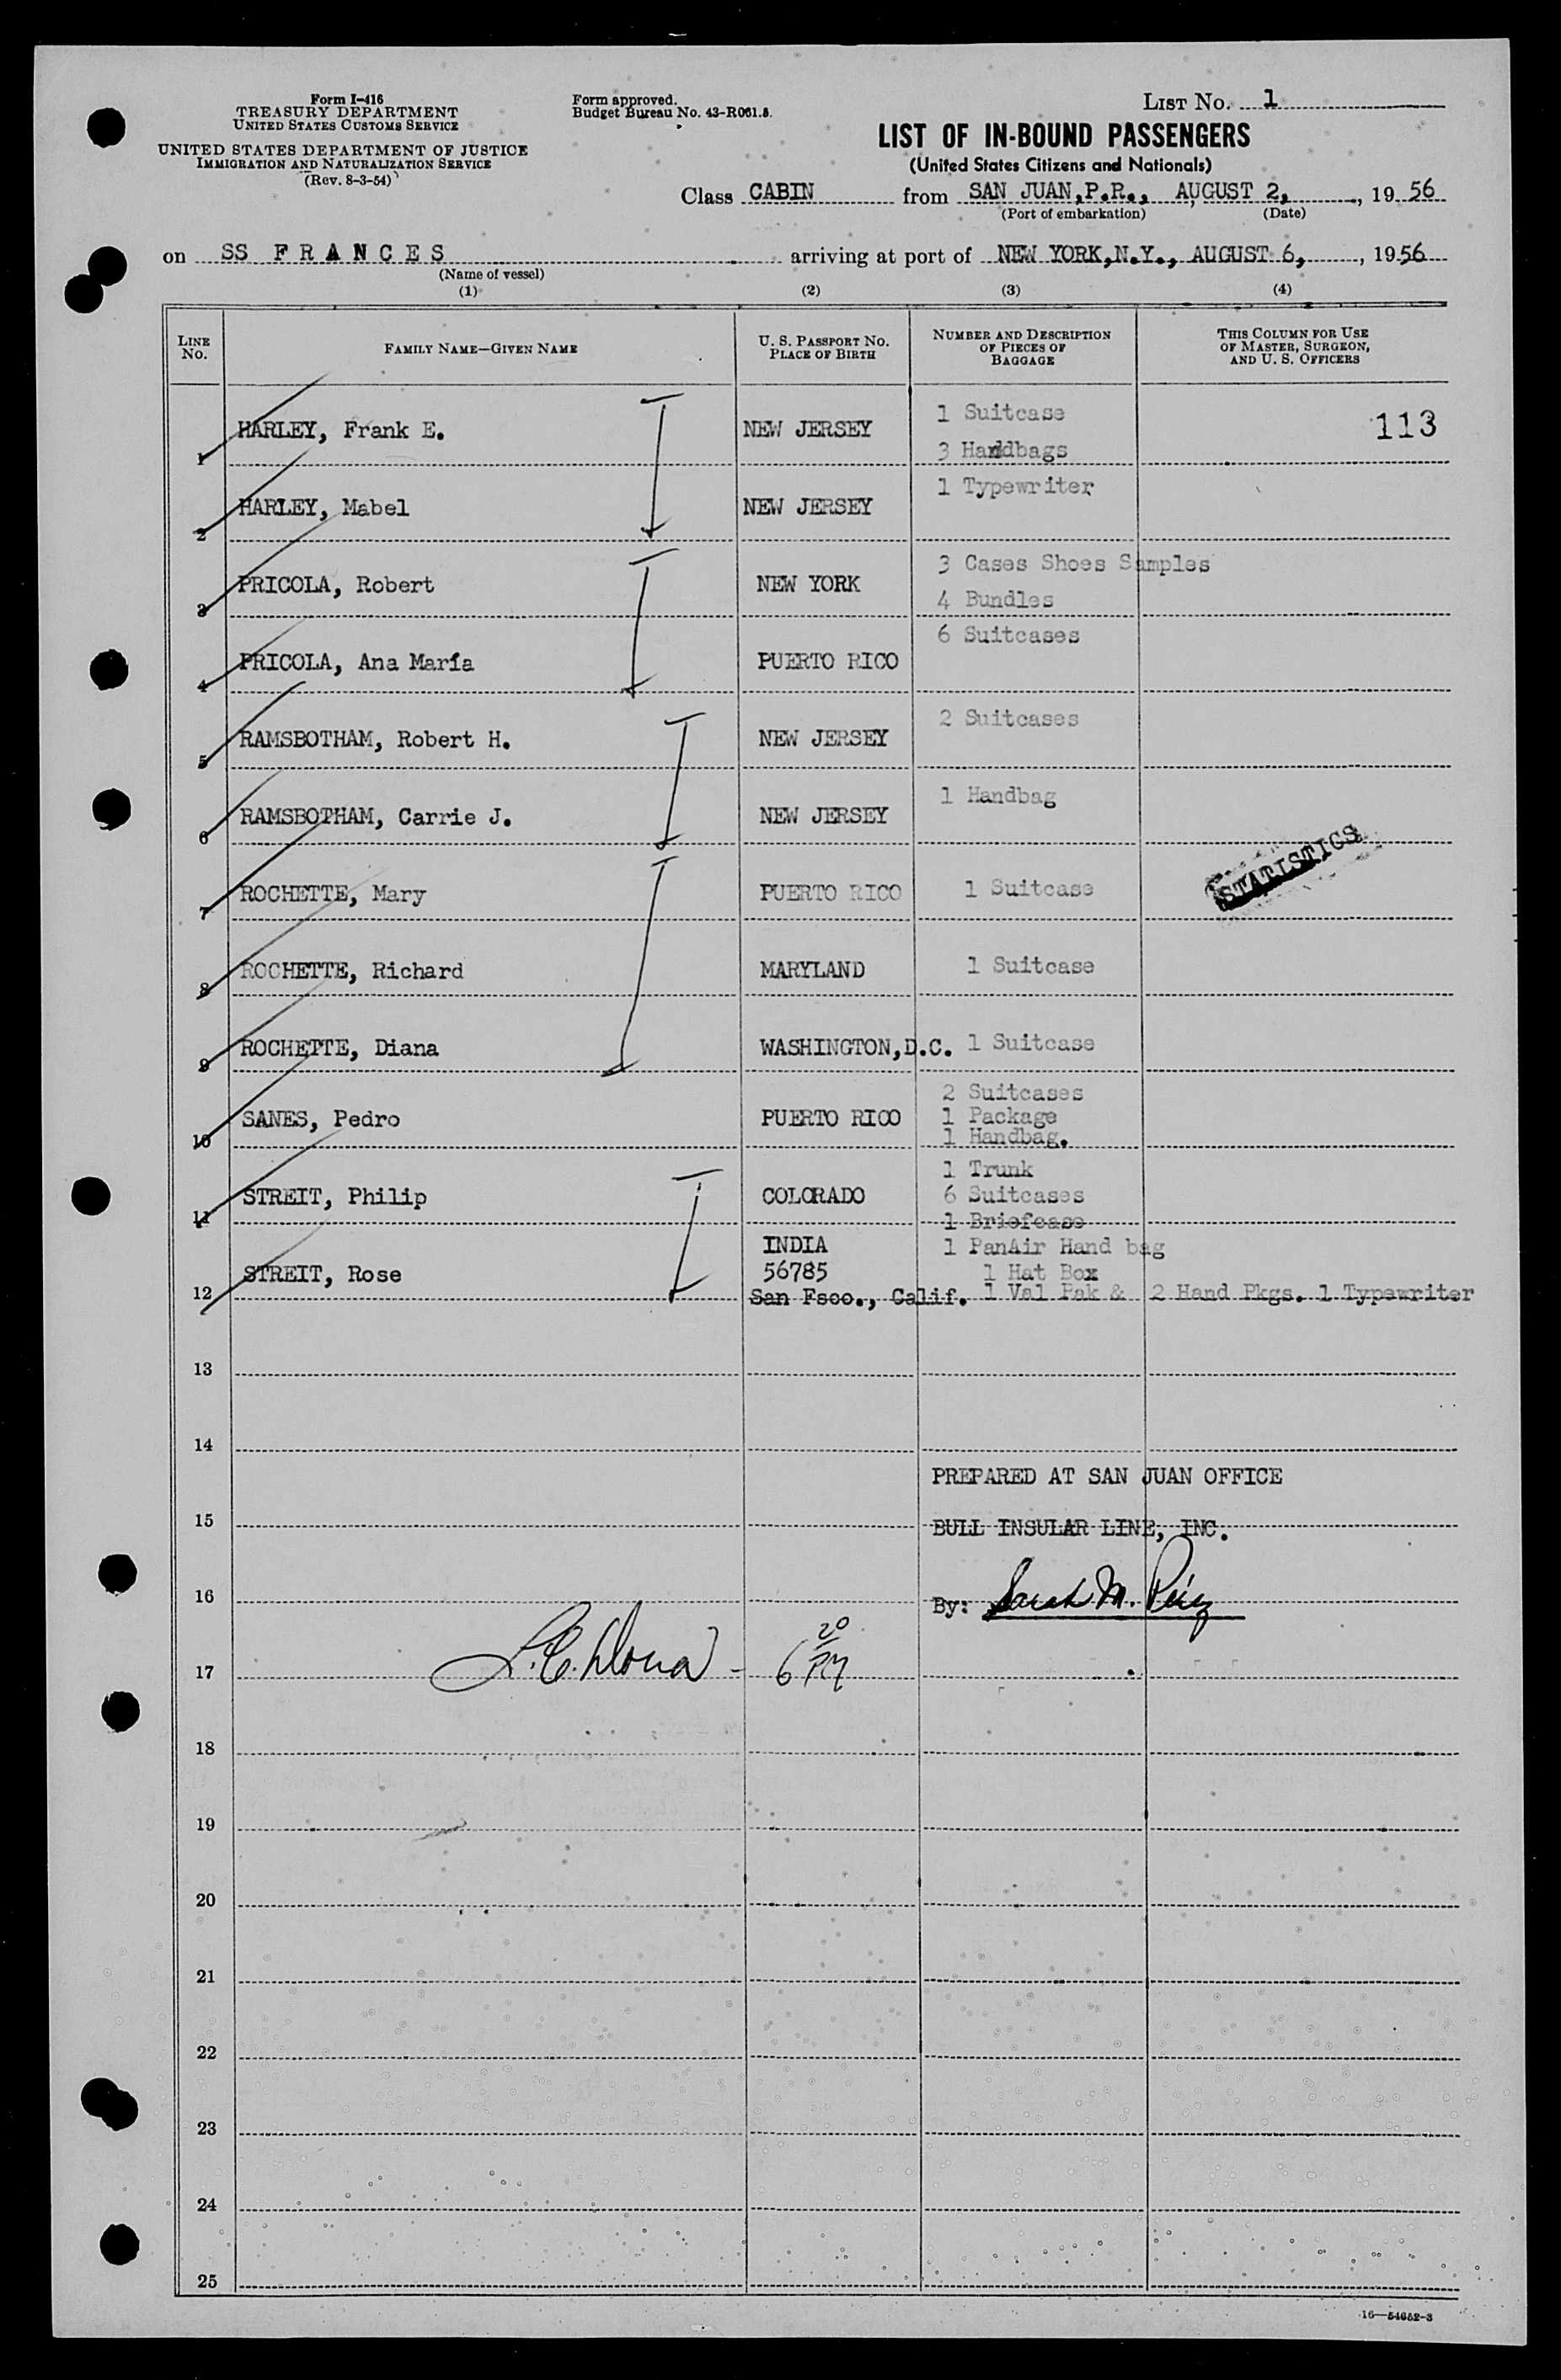 Form I-416
TREASURY DEPARTMENT
UNITED STATES CUSTOMS SERVICE
UNITED STATES DEPARTMENT OF JUSTICE
IMMIGRATION AND NATURALIZATION SERVICE
(Rev. 8-3-54)
Form approved.
Budget Bureau No. 43-R061.5.
LIST NO. 1
LIST OF IN-BOUND PASSENGERS
(United States Citizens and Nationals)
Class CABIN from SAN JUAN,P.R., AUGUST 2, , 19 56
(Port of embarkation) (Date)
on SS F R A N C E S arriving at port of NEW YORK,N.Y., AUGUST 6, , 19 56
(Name of vessel)
(1) (2) (3) (4)
LINE NO. FAMILY NAME—GIVEN NAME U. S. PASSPORT NO. PLACE OF BIRTH NUMBER AND DESCRIPTION OF PIECES OF BAGGAGE THIS COLUMN FOR USE OF MASTER, SURGEON, AND U. S. OFFICERS
1 HARLEY, Frank E. NEW JERSEY 1 Suitcase 113
3 Handbags
2 HARLEY, Mabel NEW JERSEY 1 Typewriter
3 PRICOLA, Robert NEW YORK 3 Cases Shoes Samples
4 Bundles
4 PRICOLA, Ana María PUERTO RICO 6 Suitcases
5 RAMSBOTHAM, Robert H. NEW JERSEY 2 Suitcases
6 RAMSBOTHAM, Carrie J. NEW JERSEY 1 Handbag
STATISTICS
7 ROCHETTE, Mary PUERTO RICO 1 Suitcase
8 ROCHETTE, Richard MARYLAND 1 Suitcase
9 ROCHETTE, Diana WASHINGTON,D.C. 1 Suitcase
10 SANES, Pedro PUERTO RICO 2 Suitcases
1 Package
1 Handbag.
11 STREIT, Philip COLORADO 1 Trunk
6 Suitcases
1 Briefcase
12 STREIT, Rose INDIA 1 PanAir Hand bag
56785 1 Hat Box
San Fsco., Calif. 1 Val Pak & 2 Hand Pkgs. 1 Typewriter
13
14
PREPARED AT SAN JUAN OFFICE
15 BULL INSULAR LINE, INC.
16 By: Sarah M. Pérez
17 6 20 PM
18
19
20
21
22
23
24
25
16—54652-3